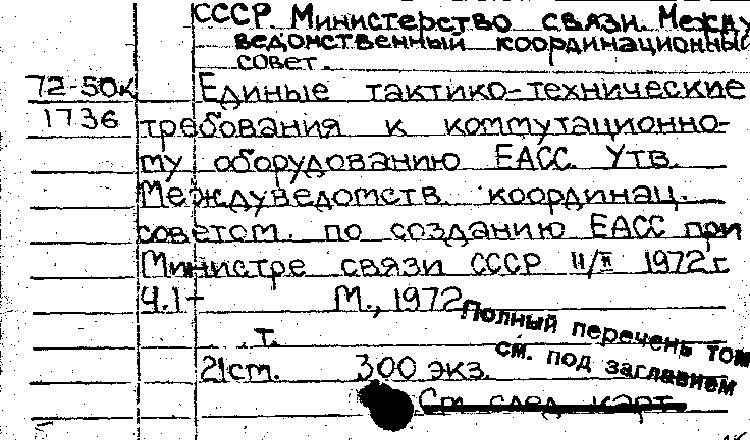 СССР. Министерство связи. Между
ведомственный координационный
совет.
72-50к Единые тактико-технические
1736 требования к коммутационно-
му оборудованию ЕАСС. Утв.
Междуведомств. координац.
советом по созданию ЕАСС при
Министре связи СССР 11/II 1972 г.
Ч.1- М., 1972
т.
21 см. 300 экз.
Полный перечень том
см. под заглавием
См след карт